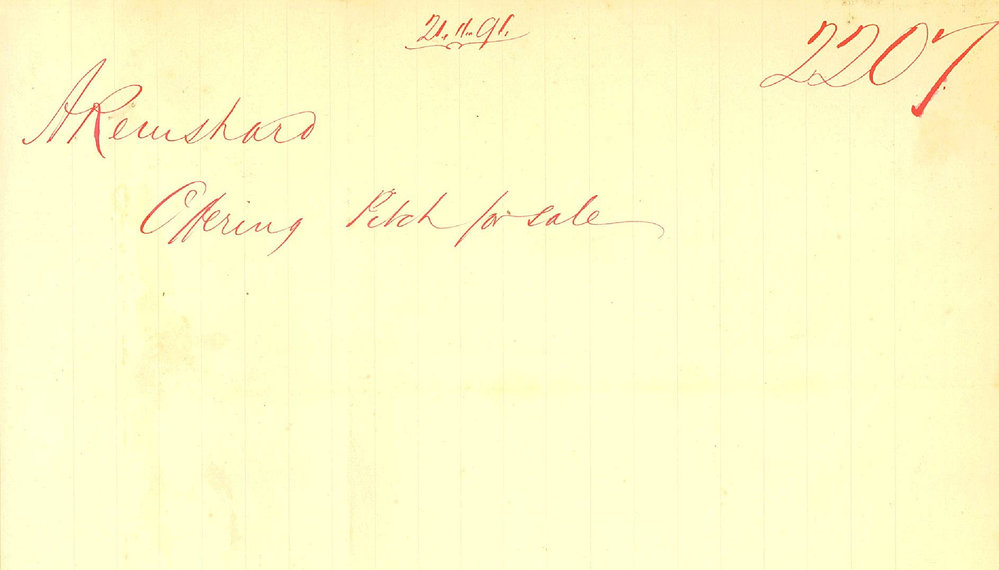 21.11.91.
2207
A Remshard
Offering Pitch for sale